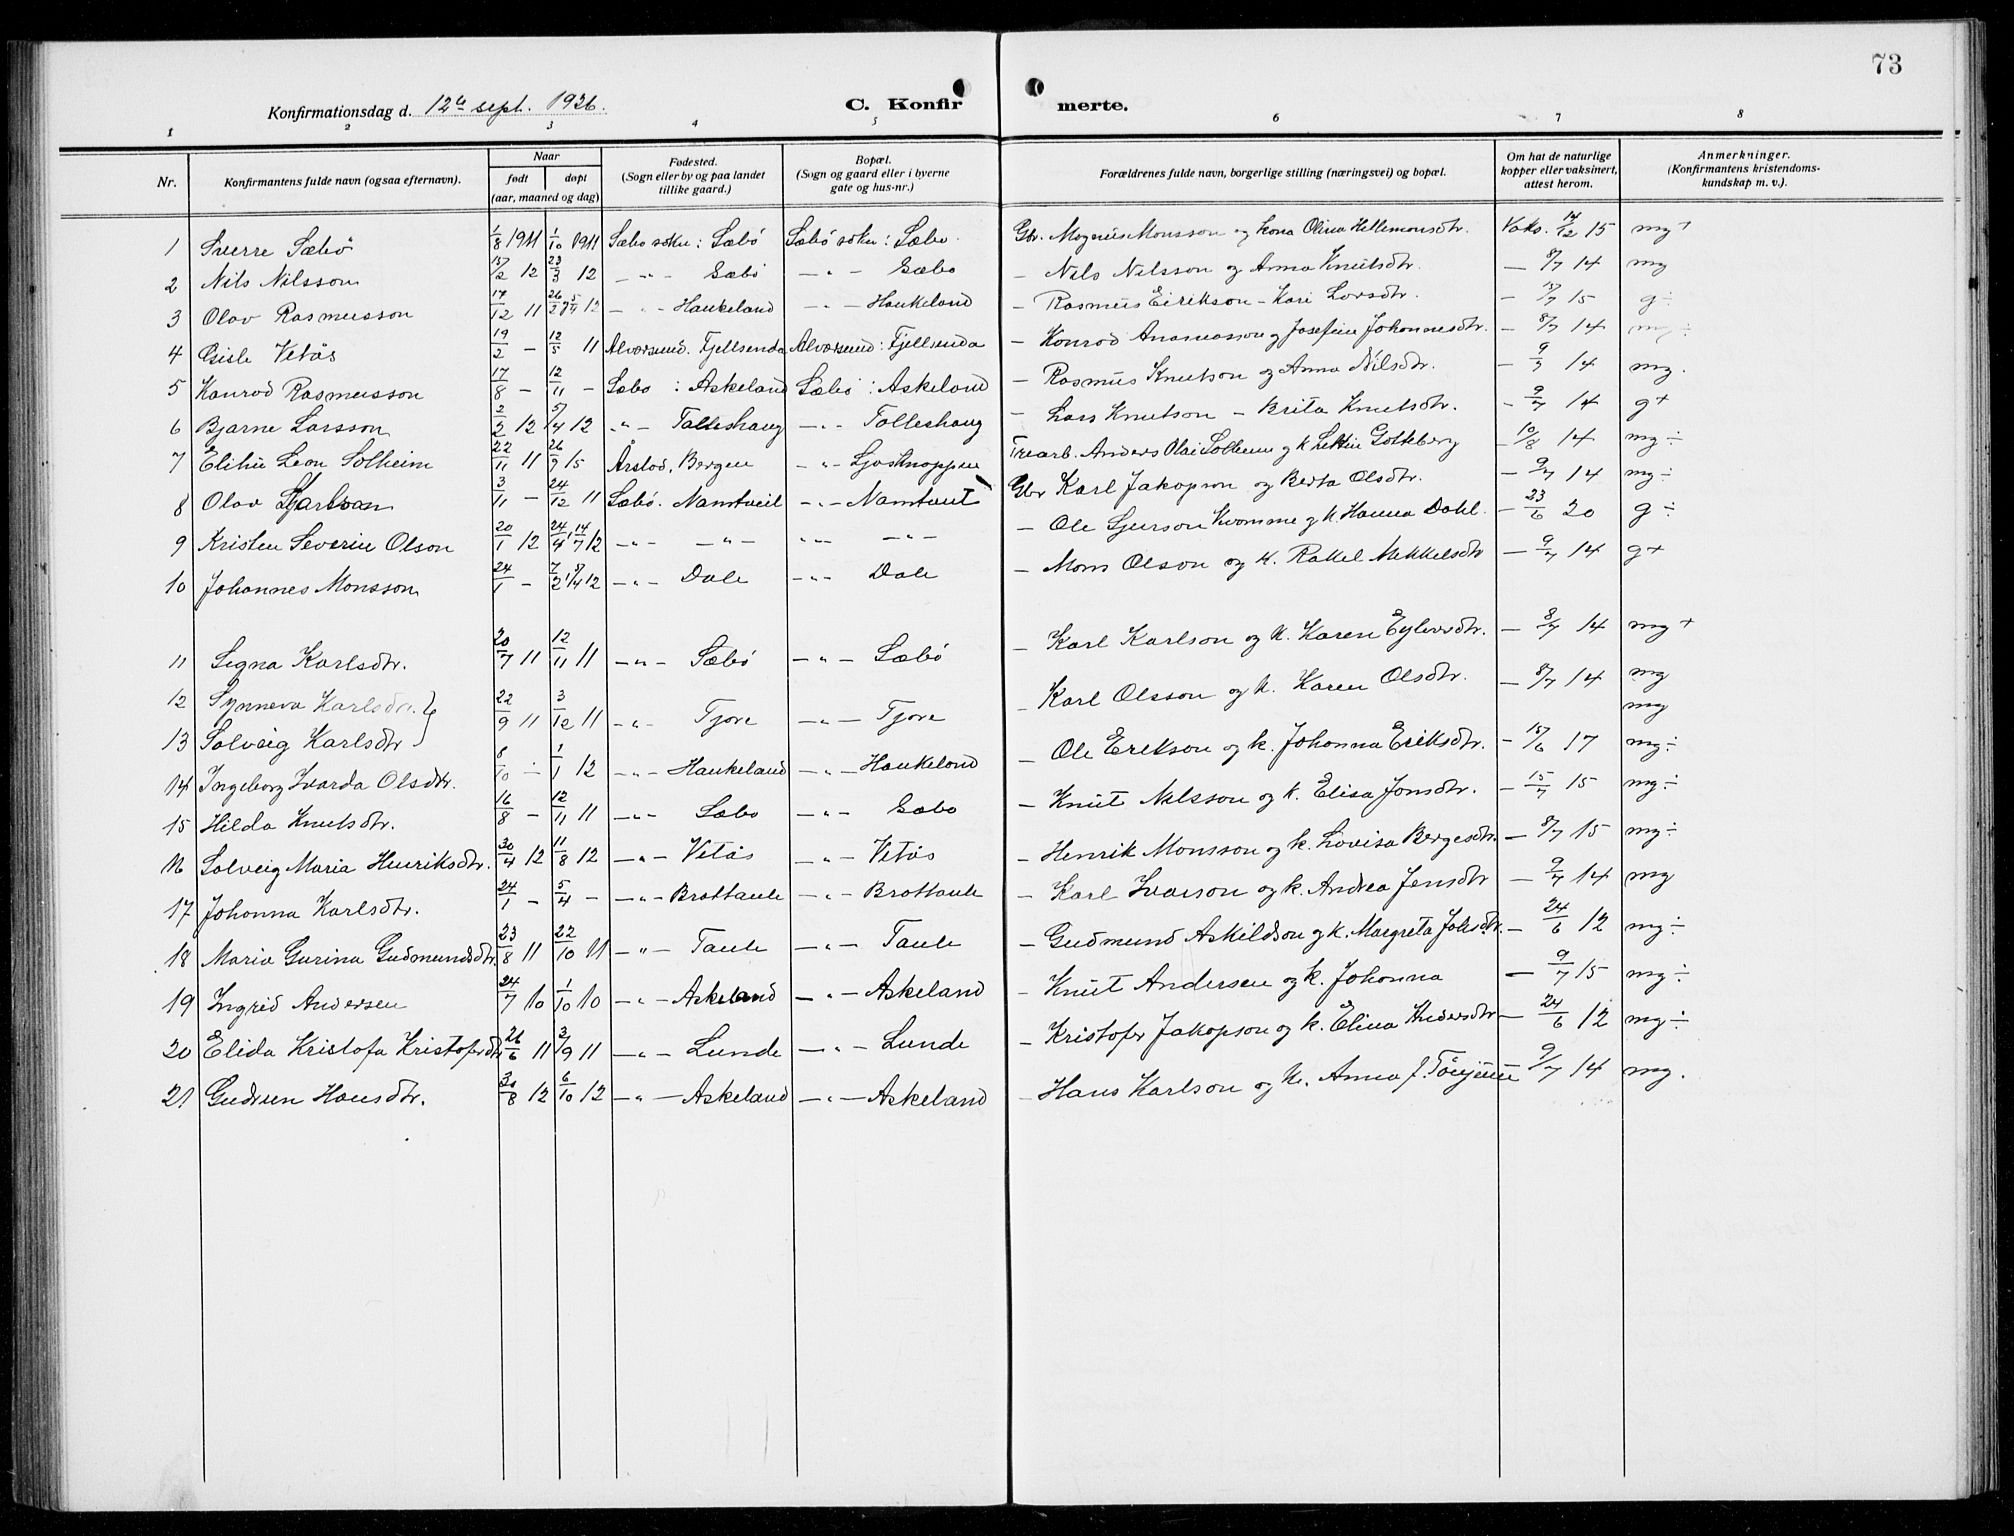 73
Konfirmationsdag d. 12te sept. 1926.
C. Konfirmerte.
1 2 3 4 5 6 7 8
Nr.
Konfirmantens fulde navn (ogsaa efternavn).
Naar
født
døpt
(aar, maaned og dag)
Fødested.
(Sogn eller by og paa landet
tillike gaard.)
Bopæl.
(Sogn og gaard eller i byerne
gate og hus-nr.)
Forældrenes fulde navn, borgerlige stilling (næringsvei) og bopæl.
Om hat de naturlige
kopper eller vaksinert,
attest herom.
Anmerkninger.
(Konfirmantens kristendoms-
kundskap m. v.).
1 Sverre Sæbö 1/8 1911 1/10 1911 Sæbö sokn: Sæbö Sæbö sokn: Sæbö. Gbr. Magnus Monsson og kona Olina Hellemonsdtr. Vaks. 14/12 15 mg+
2 Nils Nilsson 15/2 12 23/3 12 –"– Sæbö –"– Sæbö – Nils Nilsson og Anna Knutsdtr. – 8/7 14 mg
3 Olav Rasmusson 17/12 11 26/2 12 –"– Haukeland –"– Haukeland – Rasmus Eirikson – Kari Larsdtr. – 15/7 15 g÷
4 Gisle Vetås 19/2 – 12/5 11 Alversund. Fjellsenda Alversund: Fjellsenda – Konrad Anasiasson og Josefine Johannesdtr. – 8/7 14 mg÷
5 Konrad Rasmusson 17/8 – 12/11 – Sæbö : Askeland Sæbö : Askeland – Rasmus Knutson og Anna Nilsdtr. – 9/7 14 mg.
6 Bjarne Larsson 2/2 12 5/4 12 "– Tolleshaug –"– Tolleshaug – Lars Knutson – Brita Knutsdtr. – 9/7 14 g+
7 Elihu Leon Solheim 22/11 11 26/9 15 Årstad, Bergen –"– Ljosknappen Trearb. Anders Olai Solheim og k Lettin Gotteberg – 10/8 14 mg÷
8 Olav Karlson 3/11 – 24/12 11 Sæbö. Namtveit –"– Namtveit Gbr Karl Jakopson og Berta Olsdtr. – 9/7 14 mg÷
9 Kristen Severin Olson 20/1 12 24/4, 14/7 12 –"– –"– –"– –"– – Ole Sjurson Kvamme og k. Hanna Dahl. – 23/6 20 g÷
10 Johannes Monsson 24/1 – 7/2, 8/4 12 –"– Dale –"– Dale – Mons Olson og k. Rakel Mikkelsdtr – 9/7 14 g+
11 Signa Karlsdtr. 20/7 11 12/11 11 –"– Sæbö –"– Sæbö – Karl Karlson og k. Karen Eylersdtr. – 8/7 14 mg+
12 Synneva Karlsdtr. 22/9 11 3/12 11 –"– Tjore –"– Tjore – Karl Olsson og k. Karen Olsdtr. – 8/7 14 mg
13 Solveig Karlsdtr mg
14 Ingeborg Ivarda Olsdtr. 8/10 – 1/1 12 –"– Haukeland –"– Haukeland – Ole Erikson og k. Johanna Eriksdtr. – 15/6 17 mg÷
15 Hilda Knutsdtr. 16/8 – 12/11 11 –"– Sæbö –"– Sæbo – Knut Nilsson og k. Elisa Jonsdtr. – 15/7 15 mg÷
16 Solveig Maria Henriksdtr. 30/4 12 11/8 12 –"– Vetås –"– Vetås – Henrik Monsson og k. Lovisa Bergesdtr. – 8/7 15 mg÷
17 Johanna Karlsdtr. 24/1 – 5/4 – –"– Brattaule –"– Brattaule – Karl Ivarson og k. Andrea Jensdtr – 9/7 14 mg
18 Maria Gurina Gudmundsdtr. 23/8 11 22/10 11 –"– Taule –"– Taule – Gudmund Askildson og k. Margreta Johsdtr. – 24/6 12 mg÷
19 Ingrid Andersen 24/7 10 1/10 10 –"– Askeland –"– Askeland – Knut Andersen og k. Johanna – 9/7 15 mg÷
20 Elida Kristofa Kristofersdtr 26/6 11 3/9 11 –"– Lunde –"– Lunde – Kristofer Jakopson og k. Elina Andersdtr – 24/6 12 mg÷
21 Gudrun Hansdtr. 30/8 12 6/10 12 –"– Askeland –"– Askeland – Hans Karlson og k. Anna f. – 9/7 14 mg.